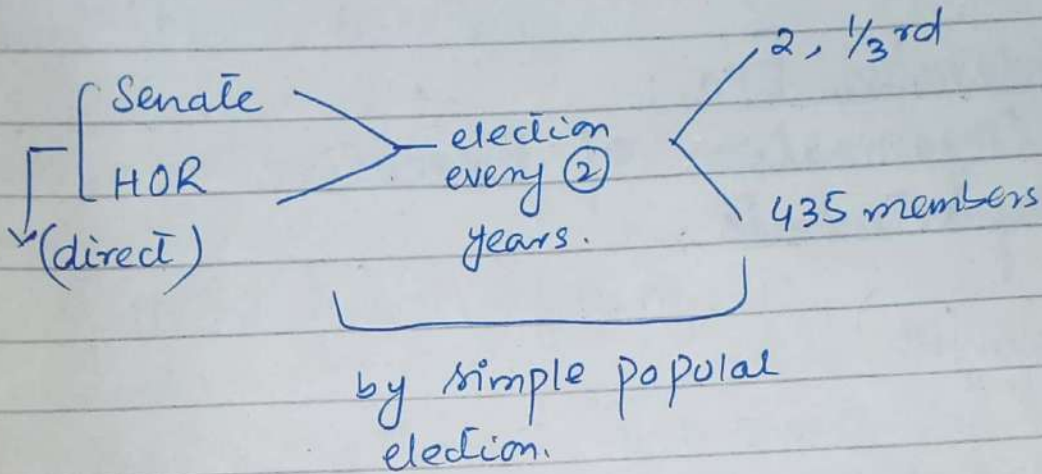 Senate
HOR
(direct)
election
every 2
years.
2, 1/3 rd
435 members
by simple popular
election.